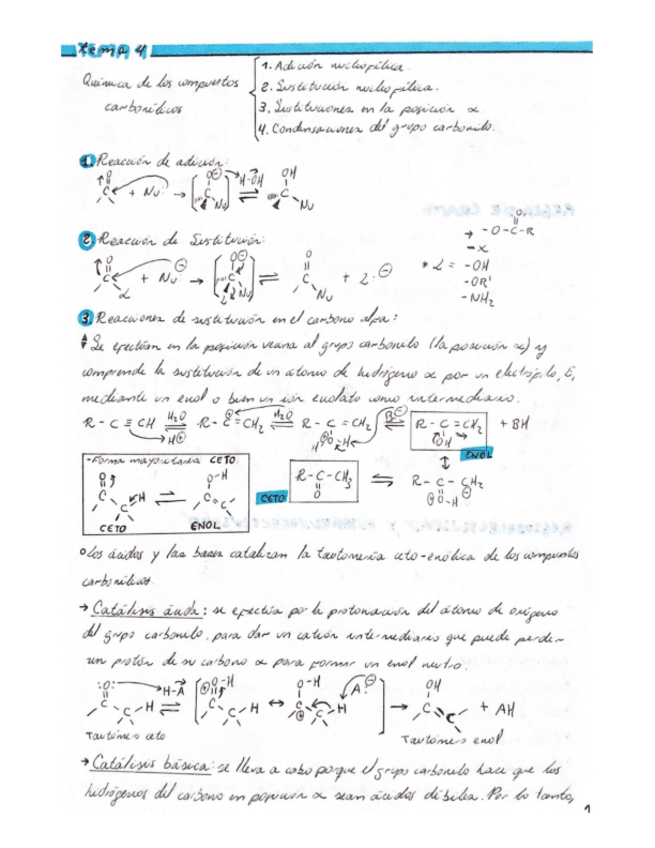 tema 4
Química de los compuestos
carbonílicos
1. Adición nucleofílica.
2. Sustitución nucleofílica.
3. Sustituciones en la posición α.
4. Condensaciones del grupo carbonilo.
1. Reacción de adición:
O
C + Nu: → [O⊖ C Nu] H-OH ⇌ OH C Nu
2. Reacción de Sustitución:
O
C L + Nu:⊖ → [O⊖ C L Nu] ⇌ O C Nu + L:⊖
* L =
→ -O-C-R
O
-X
-OH
-OR'
-NH2
3. Reacciones de sustitución en el carbono alfa:
Se efectúan en la posición vecina al grupo carbonilo (la posición α) y
comprende la sustitución de un átomo de hidrógeno α por un electrófilo, E,
mediante un enol o bien un ión enolato como intermediario.
R - C ≡ CH H2O ⇌ R - C = CH2 H2O ⇌ R - C = CH2 B:⊖ ⇌ R - C = CH2 + BH
H⊕
H O H
OH
ENOL
-Forma mayoritaria CETO.
O C C H ⇌ O-H C=C
CETO ENOL
CETO
R-C-CH3 ⇌ R - C - CH2
O
O-H
Los ácidos y las bases catalizan la tautomería ceto-enólica de los compuestos
carbonílicos.
→ Catálisis ácida: se efectúa por la protonación del átomo de oxígeno
del grupo carbonilo, para dar un catión intermediario que puede perder
un protón de su carbono α para formar un enol neutro.
:O: C C-H H-A ⇌ [O-H C C-H ↔ O-H C C H A:⊖] → OH C=C + AH
Tautómero ceto
Tautómero enol
→ Catálisis básica: se lleva a cabo porque el grupo carbonilo hace que los
hidrógenos del carbono en posición α sean ácidos débiles. Por lo tanto,
1